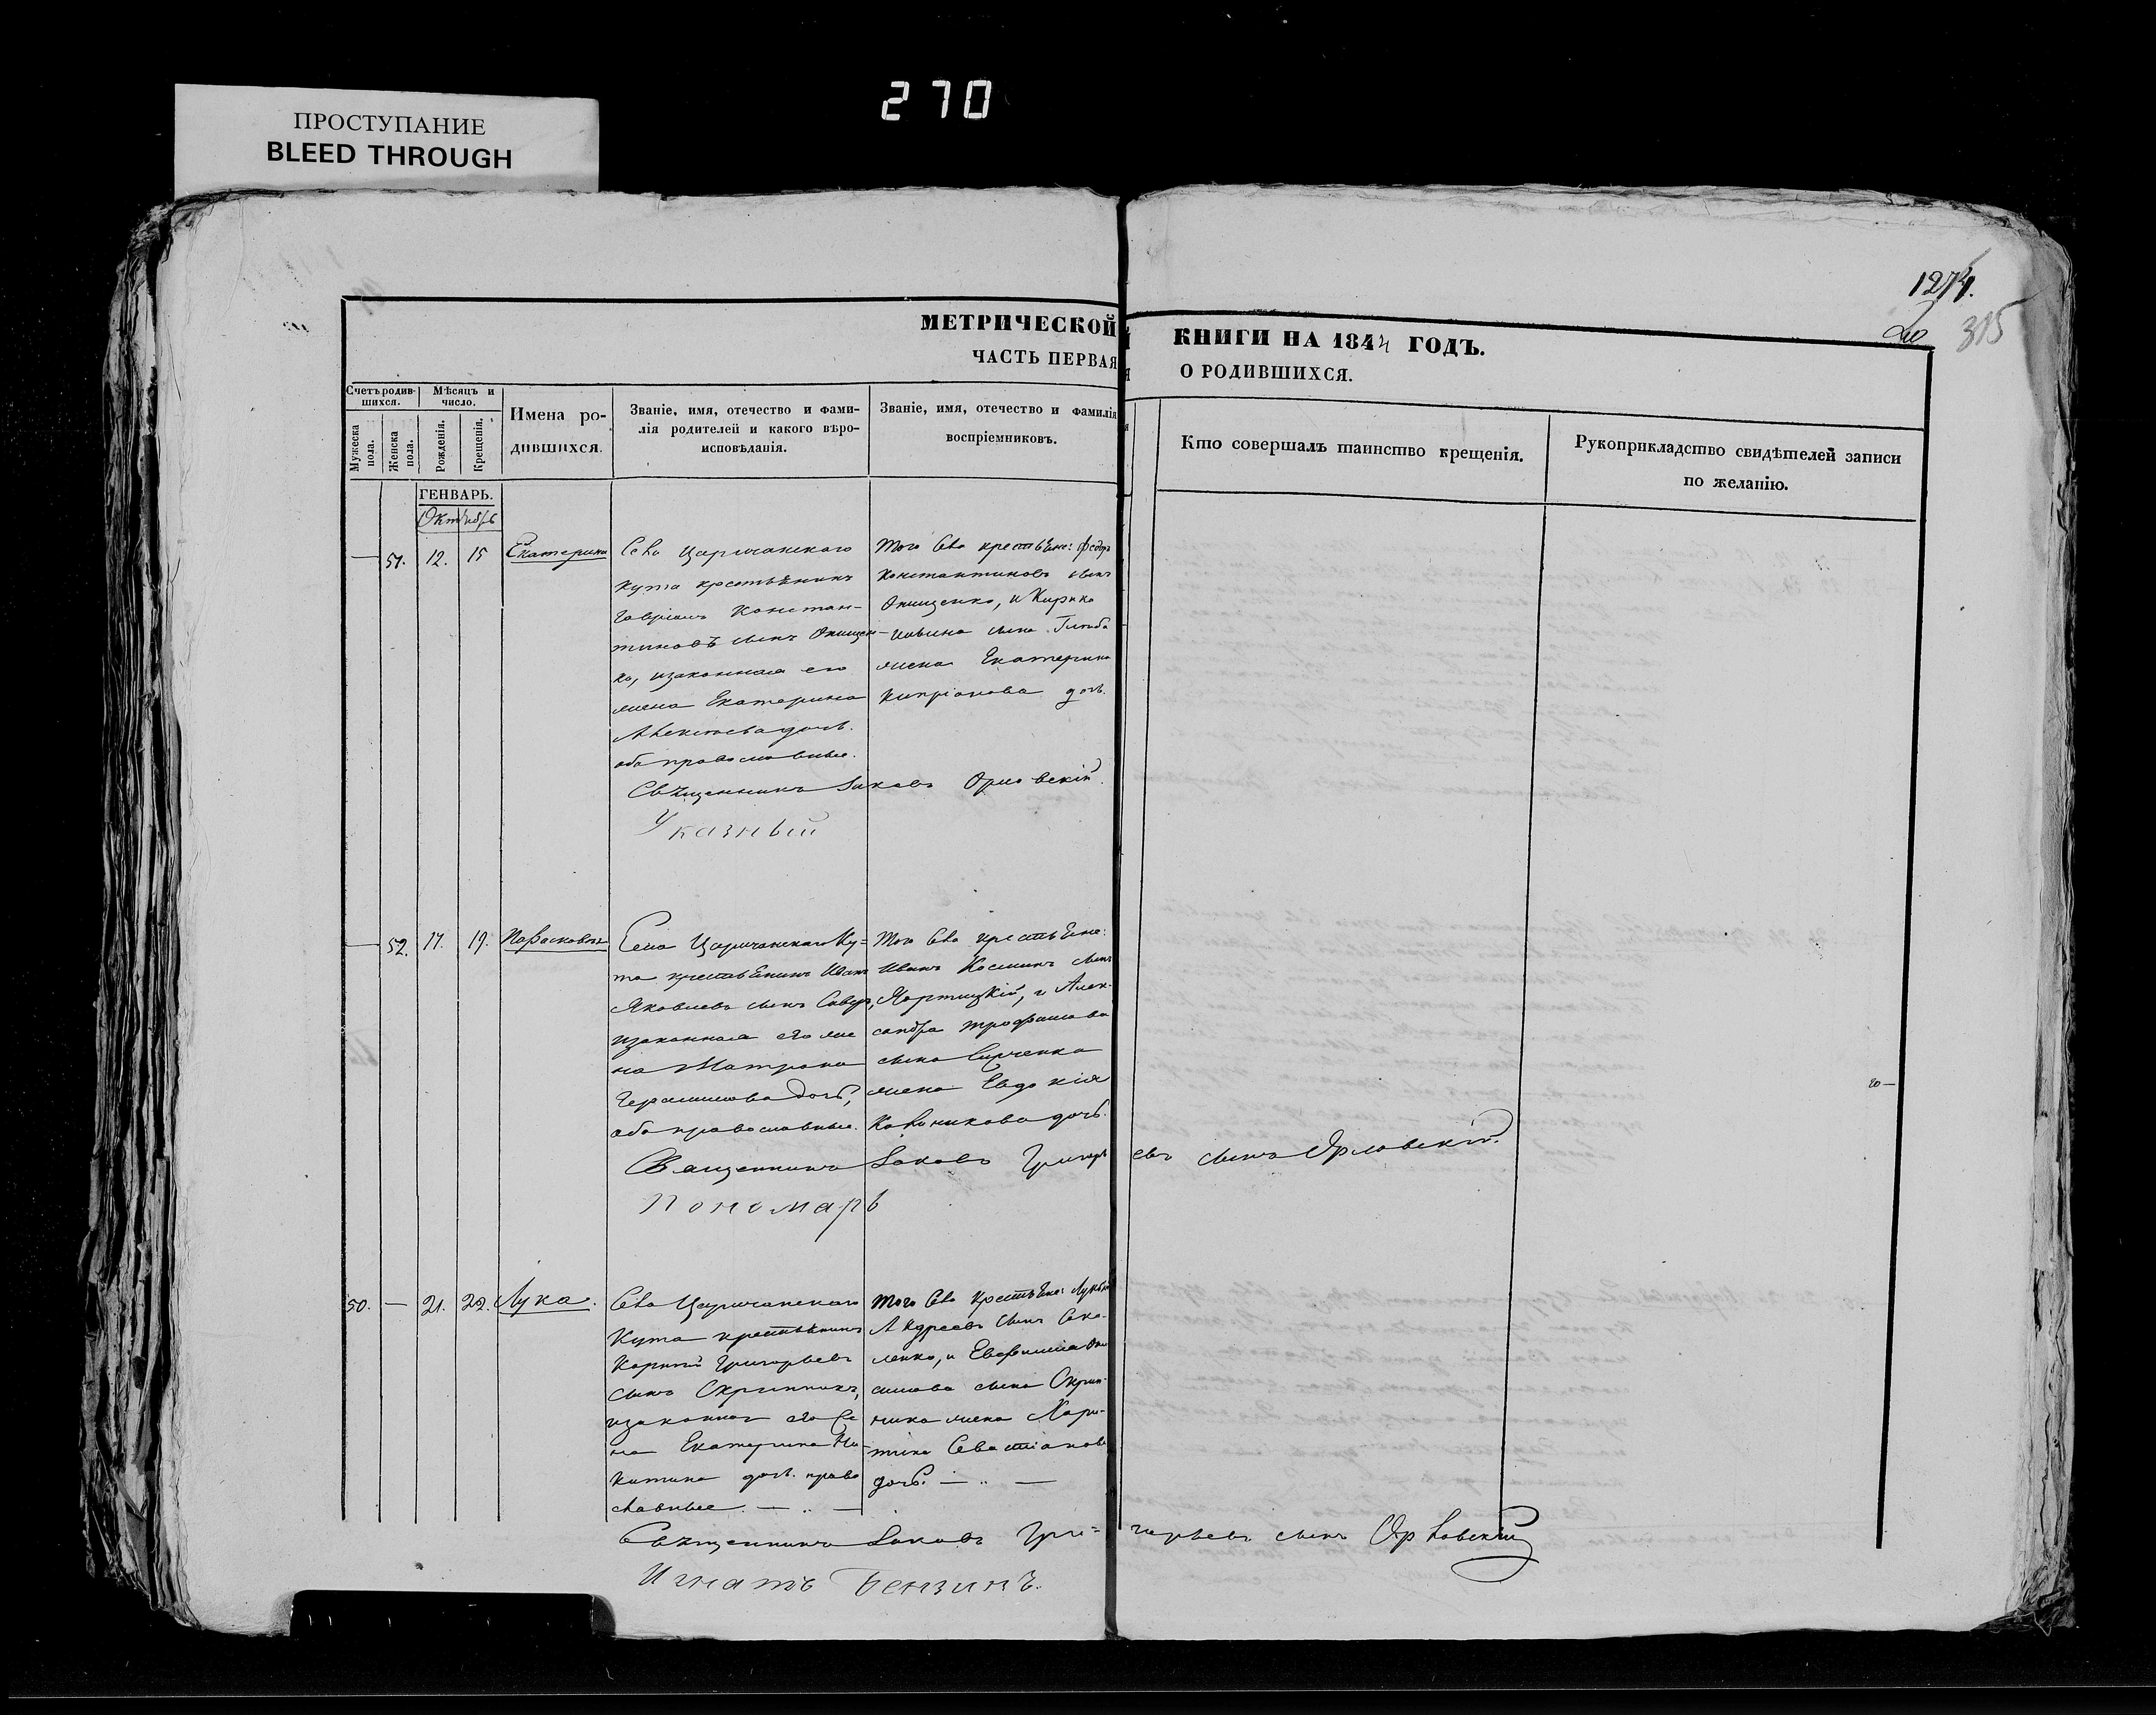 270
ПРОСТУПАНИЕ
BLEED THROUGH
1274.
315
МЕТРИЧЕСКОЙ КНИГИ НА 1844 ГОДЪ.
ЧАСТЬ ПЕРВАЯ О РОДИВШИХСЯ.
Счетъ родив-
шихся.
Мужеска
пола.
Женска
пола.
Мѣсяцъ и
число.
Рожденія.
Крещенія.
Имена ро-
дившихся.
Званіе, имя, отечество и фами-
лія родителей и какого вѣро-
исповѣданія.
Званіе, имя, отечество и фамилія
воспріемниковъ.
Кто совершалъ таинство крещенія.
Рукоприкладство свидѣтелей записи
по желанію.
ГЕНВАРЬ.
Октябрь
51. 12. 15 Екатерина
Села Царичанского
кута крестьянинъ
Гавріилъ Констан-
тиновъ сынъ Онищен-
ко, изаконная его
жена Екатерина
Алексѣева дочь.
оба православные.
Того села крестьяне: Федоръ
Константиновъ сынъ
Онищенко, и Кирика
сына
жена Екатерина
Кипріанова дочь.
Священникъ Іаковъ Орловскій.
Указный
52. 17. 19. Параскова
Села Царичанского Ку-
та крестьянинъ Иванъ
Яковлевъ сынъ
изаконная его же
на Матрона
Герасимова дочь,
оба православные.
Того села крестьяне:
Иванъ Косминъ сынъ
и Алек-
сандра Трофимова
сына
жена Евдокія
дочь.
Священникъ Іаковъ Григорьевъ сынъ Орловскій.
Пономарь
50. — 21. 22. Лука.
Села Царичанского
Кута крестьянинъ
Корнѣй Григорьевъ
сынъ Скрипникъ,
изаконная его же
на Екатерина Ни-
китина дочь. право
славные. — " —
Того села крестьяне: Лукьянъ
Андреевъ сынъ Соко-
ленко, и
сына Скрип-
ника жена Хари-
тина Севастіанова
дочь. — " —
Священникъ Іаковъ Гри= горьевъ сынъ Орловскій
Игнатъ Бензинъ.